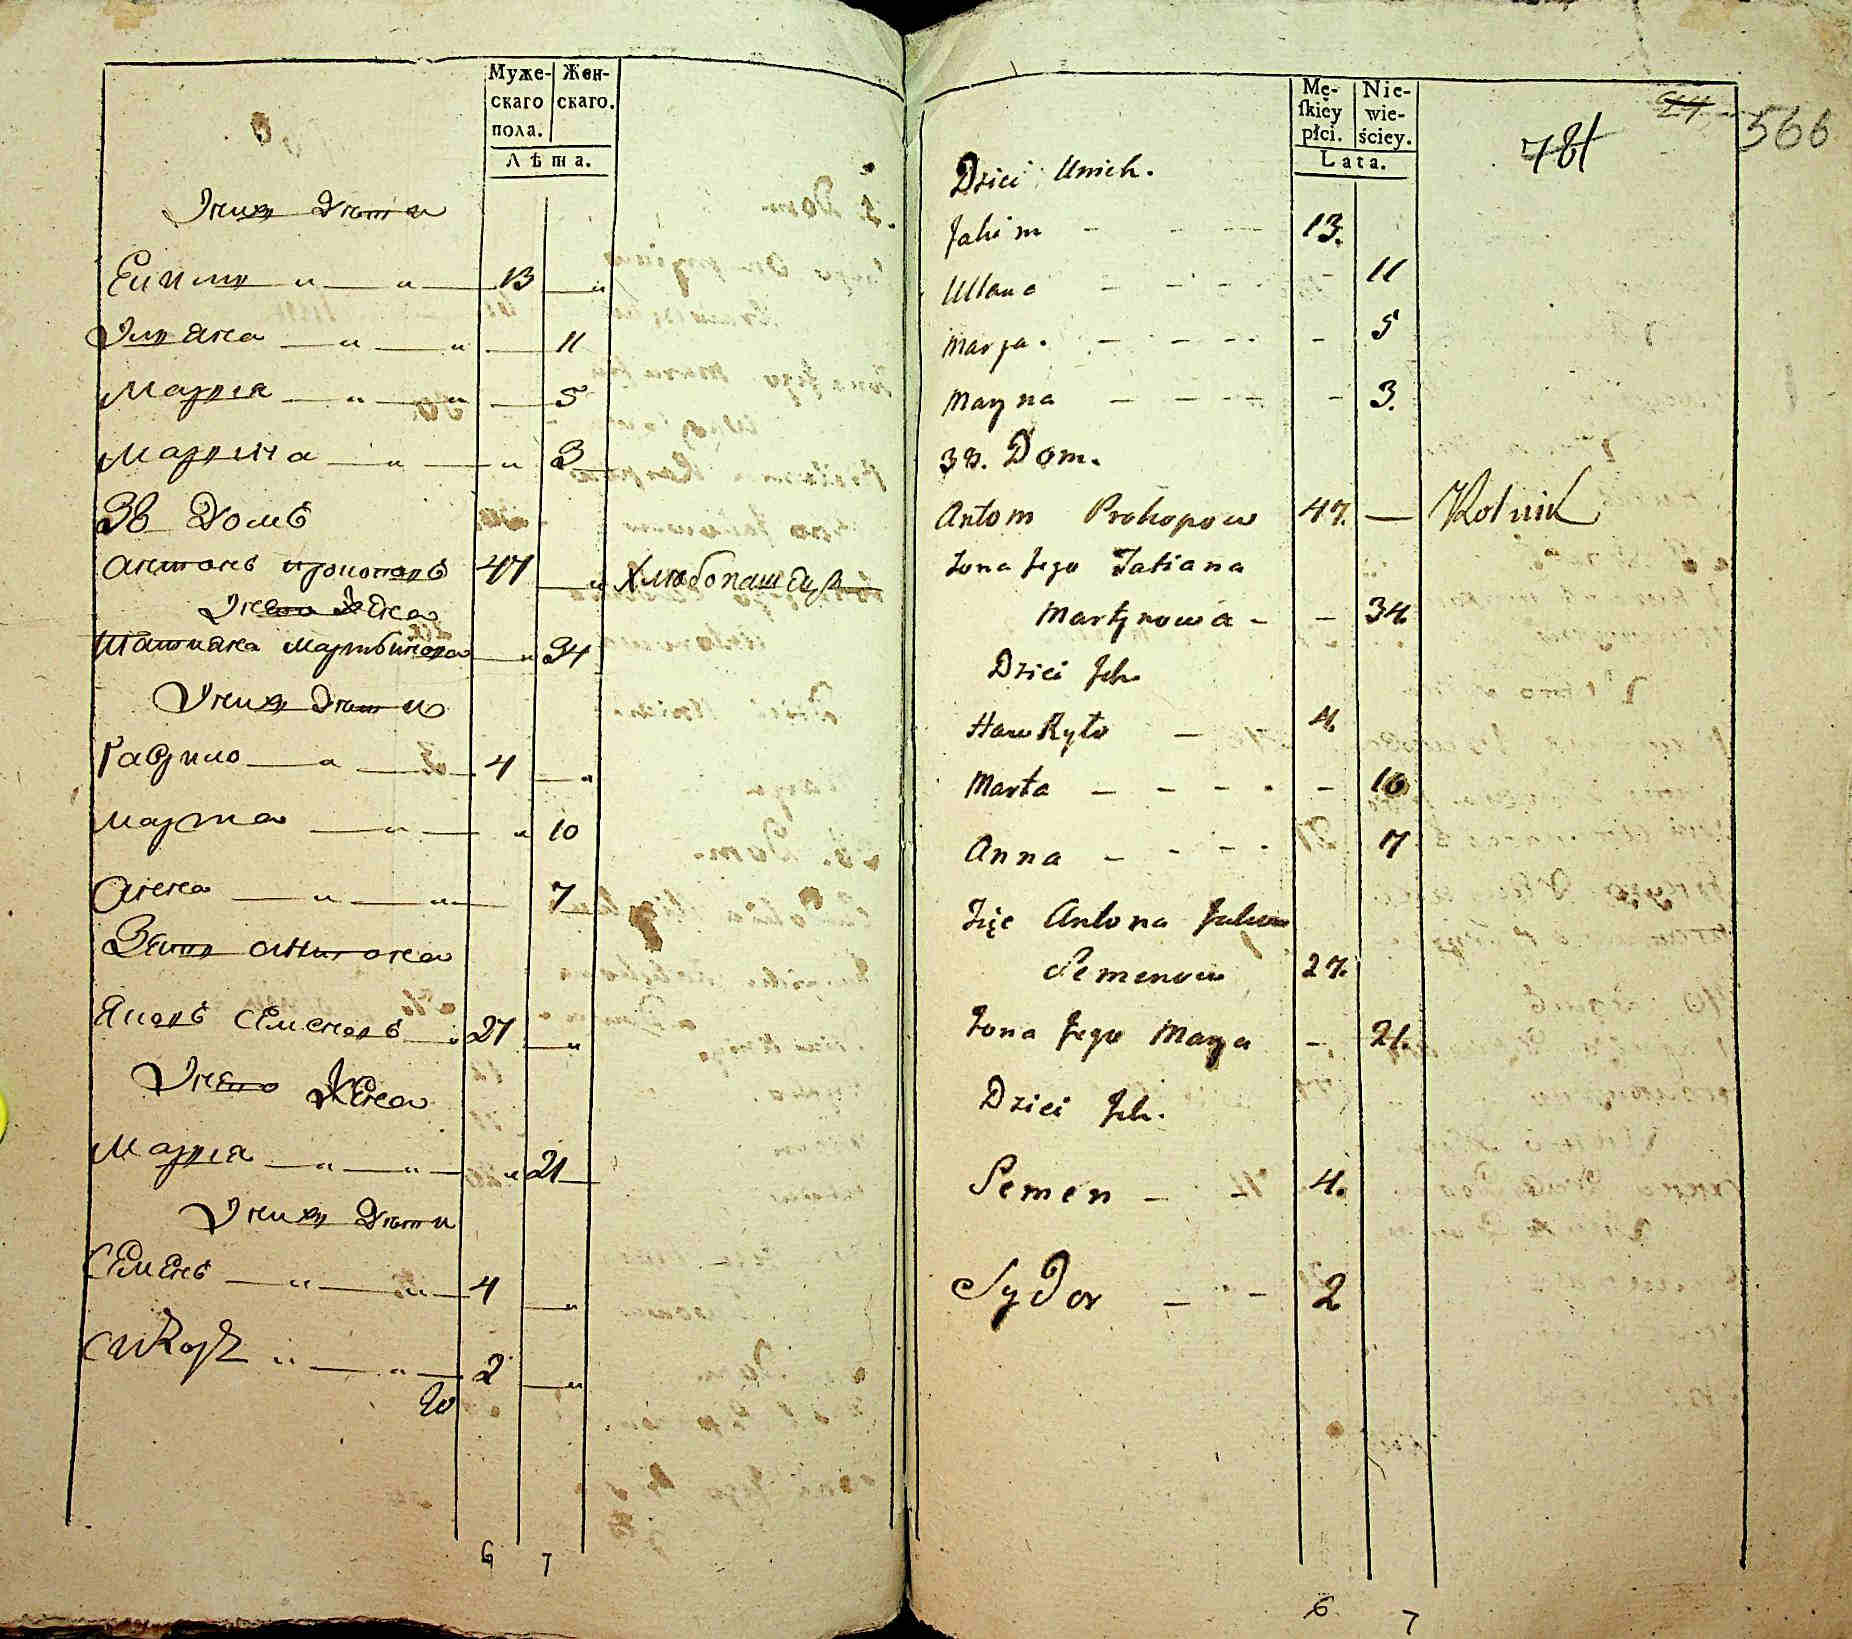 Муже-
скаго
пола.
Жен-
скаго.
Лѣта.
У них дѣти
13
Уляна 11
Марія 5
Марина 3
38 Домъ
Антонъ Прокоповъ 47 Хлѣбопашецъ
У него Жена
Татиана Мартынова 34
У них дѣти
Гаврило 4
Марта 10
Анна 7
Зять Антона
Яковъ Семеновъ 27
У него Жена
Марія 21
У них Дѣти
Семенъ 4
Сидоръ 2
6 7
Mę-
skiey
płci.
Nie-
wie-
ściey.
Lata.
781
566
Dzieci Unich.
Jakim 13.
Ullana 11
Marya. 5
Maryna 3.
38. Dom.
Antom Prokopow 47. Rolnik
Zona Jego Tatiana
Martynowa 34
Dzieci Jch
Hawryło 4.
Marta 10
Anna 7
Zięć Antona Jakow
Semenow 27.
Zona Jego Marya 21.
Dzieci Jch.
Semen 4.
Sydor 2
6 7